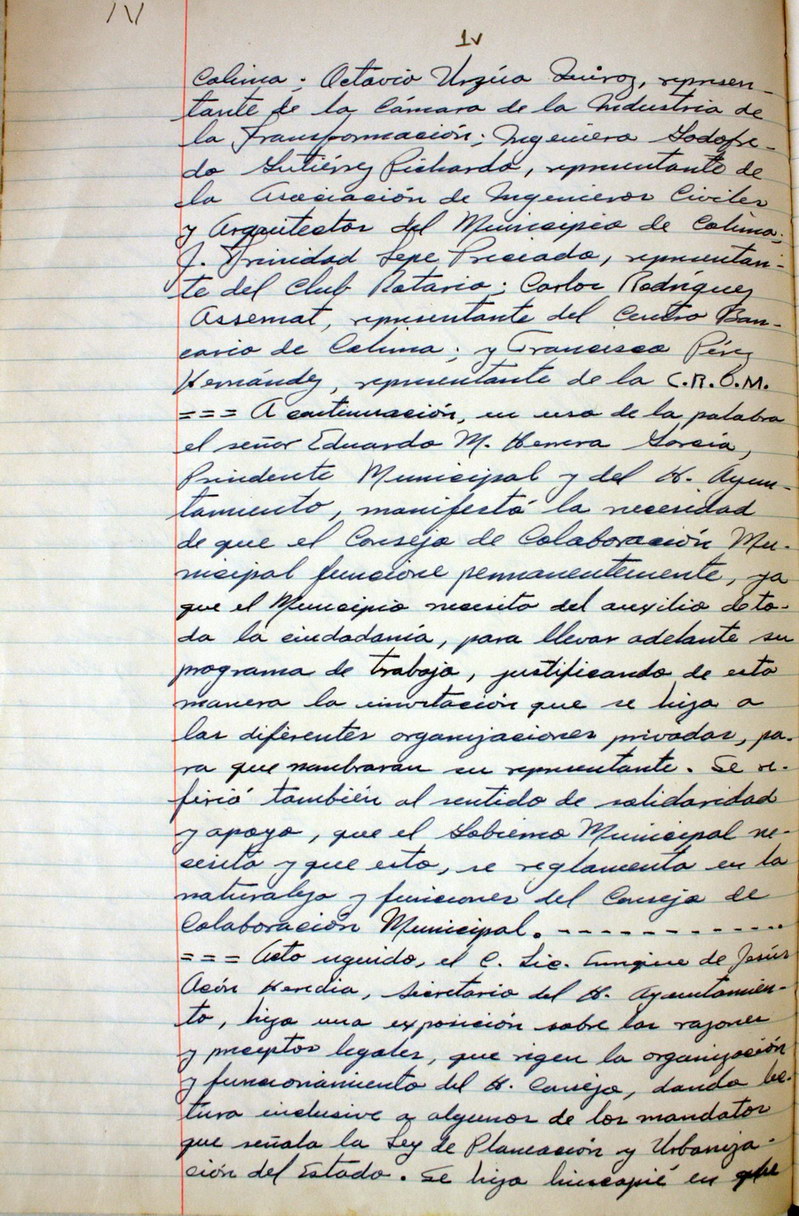 1v
Colima; Octavio Urzúa Quiroz, represen-
tante de la Cámara de la Industria de
la Transformación; Ingeniero Godofre-
do Gutiérrez Pichardo, representante de
la Asociación de Ingenieros Civiles
y Arquitectos del Municipio de Colima;
J. Trinidad Lepe Preciado, representan-
te del Club Rotario; Carlos Rodríguez
Assemat, representante del Centro Ban-
cario de Colima; y Francisco Pérez
Hernández, representante de la C.R.O.M.
=== A continuación, en uso de la palabra
el señor Eduardo M. Herrera García,
Presidente Municipal y del H. Ayun-
tamiento, manifestó la necesidad
de que el Consejo de Colaboración Mu-
nicipal funcione permanentemente, ya
que el Municipio necesita del auxilio de to-
da la ciudadanía, para llevar adelante su
programa de trabajo, justificando de esta
manera la invitación que se hizo a
las diferentes organizaciones privadas, pa-
ra que nombraran su representante. Se re-
firió también al sentido de solidaridad
y apoyo, que el Gobierno Municipal ne-
cesita y que esto, se reglamenta en la
naturaleza y funciones del Consejo de
Colaboración Municipal. - - - - - - - - - - - -
=== Acto seguido, el C. Lic. Enrique de Jesús
Ocón Heredia, Secretario del H. Ayuntamien-
to, hizo una exposición sobre las razones
y preceptos legales, que rigen la organización
y funcionamiento del H. Consejo, dando lec-
tura inclusive a algunos de los mandatos
que señala la Ley de Planeación y Urbaniza-
ción del Estado. Se hizo hincapié en que